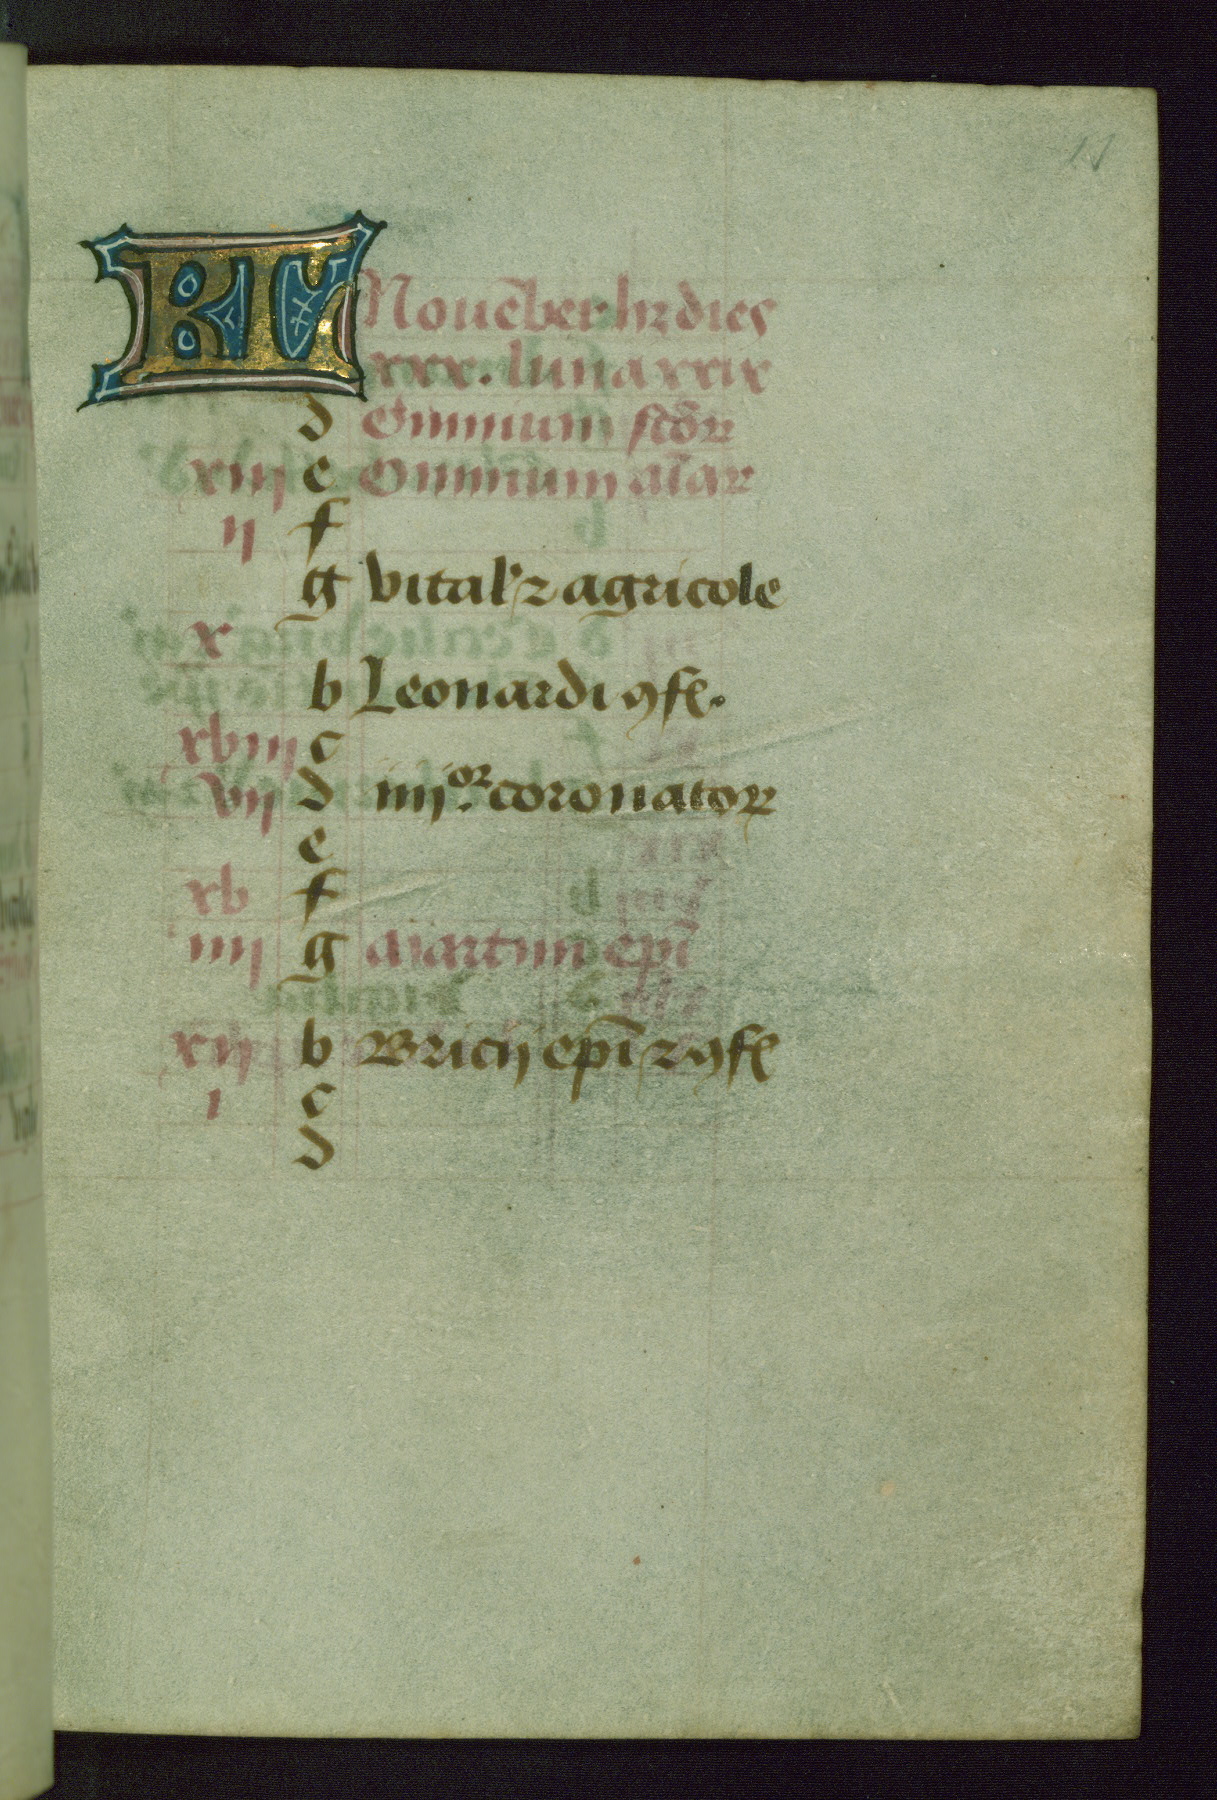 11
KL Nouēber hꝫ dies
xxx. luna xxix
d Omnium sctōꝝ
xiij e Omnium aīaꝝ
ij f
g vital' ⁊ agricole
x
b Leonardi ꝯfeſ.
xviij c
vij d iiij.or coronatoꝝ
e
xv f
iiij g Martini ep̄i
xij b Bricij ep̄i ⁊ ꝯfeſ
i c
d